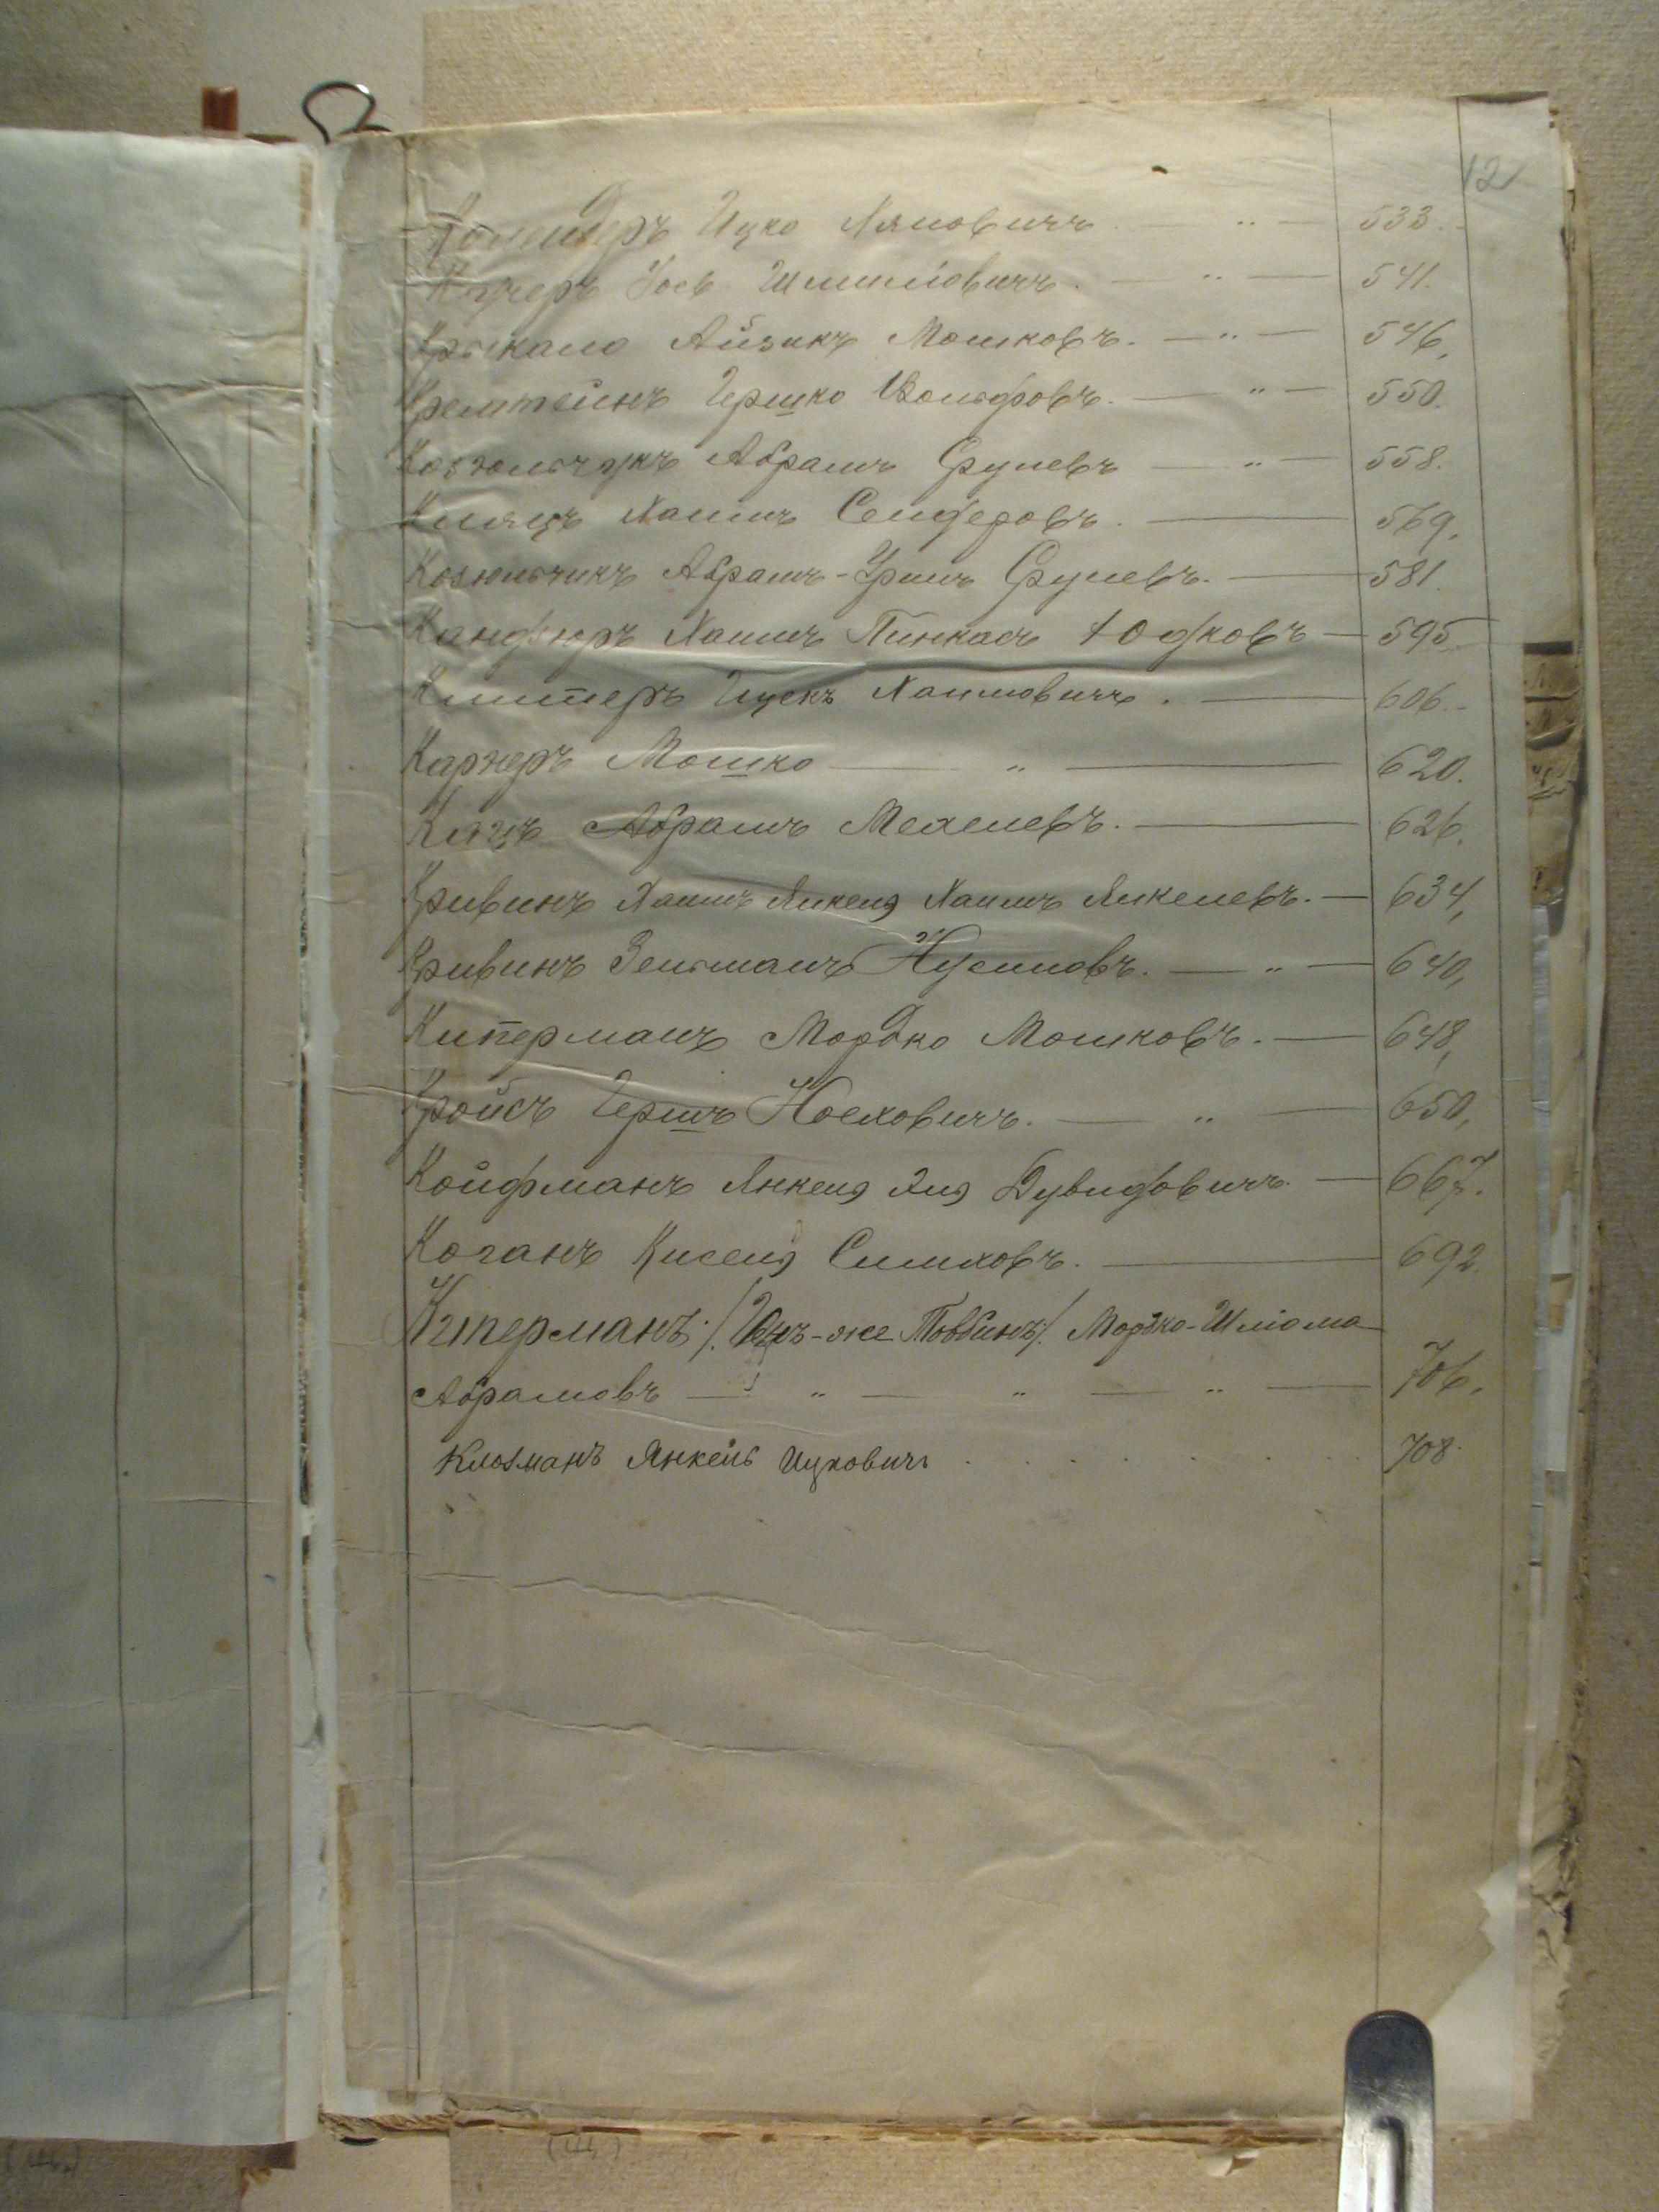 12
Ицко 533.
Иось Шмиловичъ. 541.
Крыкало Айзикъ Мошковъ. 546.
Кремтейнъ Гершко Вольфовъ. 550.
Абрамъ Срулевъ 558.
Хаимъ Сендеровъ. 569.
Козюльчикъ Абрамъ-Урым Срулевъ. 581.
Канфюръ Хаимъ Пинкасъ Юдковъ 595
Ицекъ Хаимовичъ. 606.
Карнеръ Мошко 620.
Кацъ Абрамъ Мехелевъ. 626.
Кривинъ Хаимъ Янкель Хаимъ Янкелевъ. 634,
Кривинъ Зельманъ Нусиновъ. 640,
Киперманъ Мордко Мошковъ. 648,
Кройсъ Гершъ Ноеховичъ. 650,
Койфманъ Янкель Эля Дувидовичъ 667.
Коганъ Кисель Симховъ. 692.
Киперманъ /Онъ-же Товбинъ/. Мордко-Шліома
Абрамовъ 706.
Клозманъ Янкель Ицковичъ 708